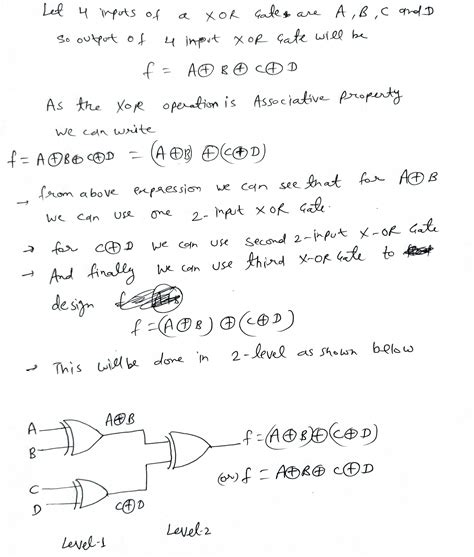 Let 4 inputs of a XOR Gates are A, B, C and D
so output of 4 input XOR Gate will be
f = A⊕B⊕C⊕D
As the XOR operation is Associative property
we can write
f = A⊕B⊕C⊕D = (A⊕B) ⊕(C⊕D)
→ from above expression we can see that for A⊕B
we can use one 2-input XOR Gate.
→ for C⊕D we can use second 2-input X-OR Gate
→ And finally we can use third X-OR Gate to
design
f = (A⊕B) ⊕ (C⊕D)
→ This will be done in 2-level as shown below
A
B
A⊕B
C
D
C⊕D
f = (A⊕B)⊕(C⊕D)
(or) f = A⊕B⊕C⊕D
Level-1
Level-2